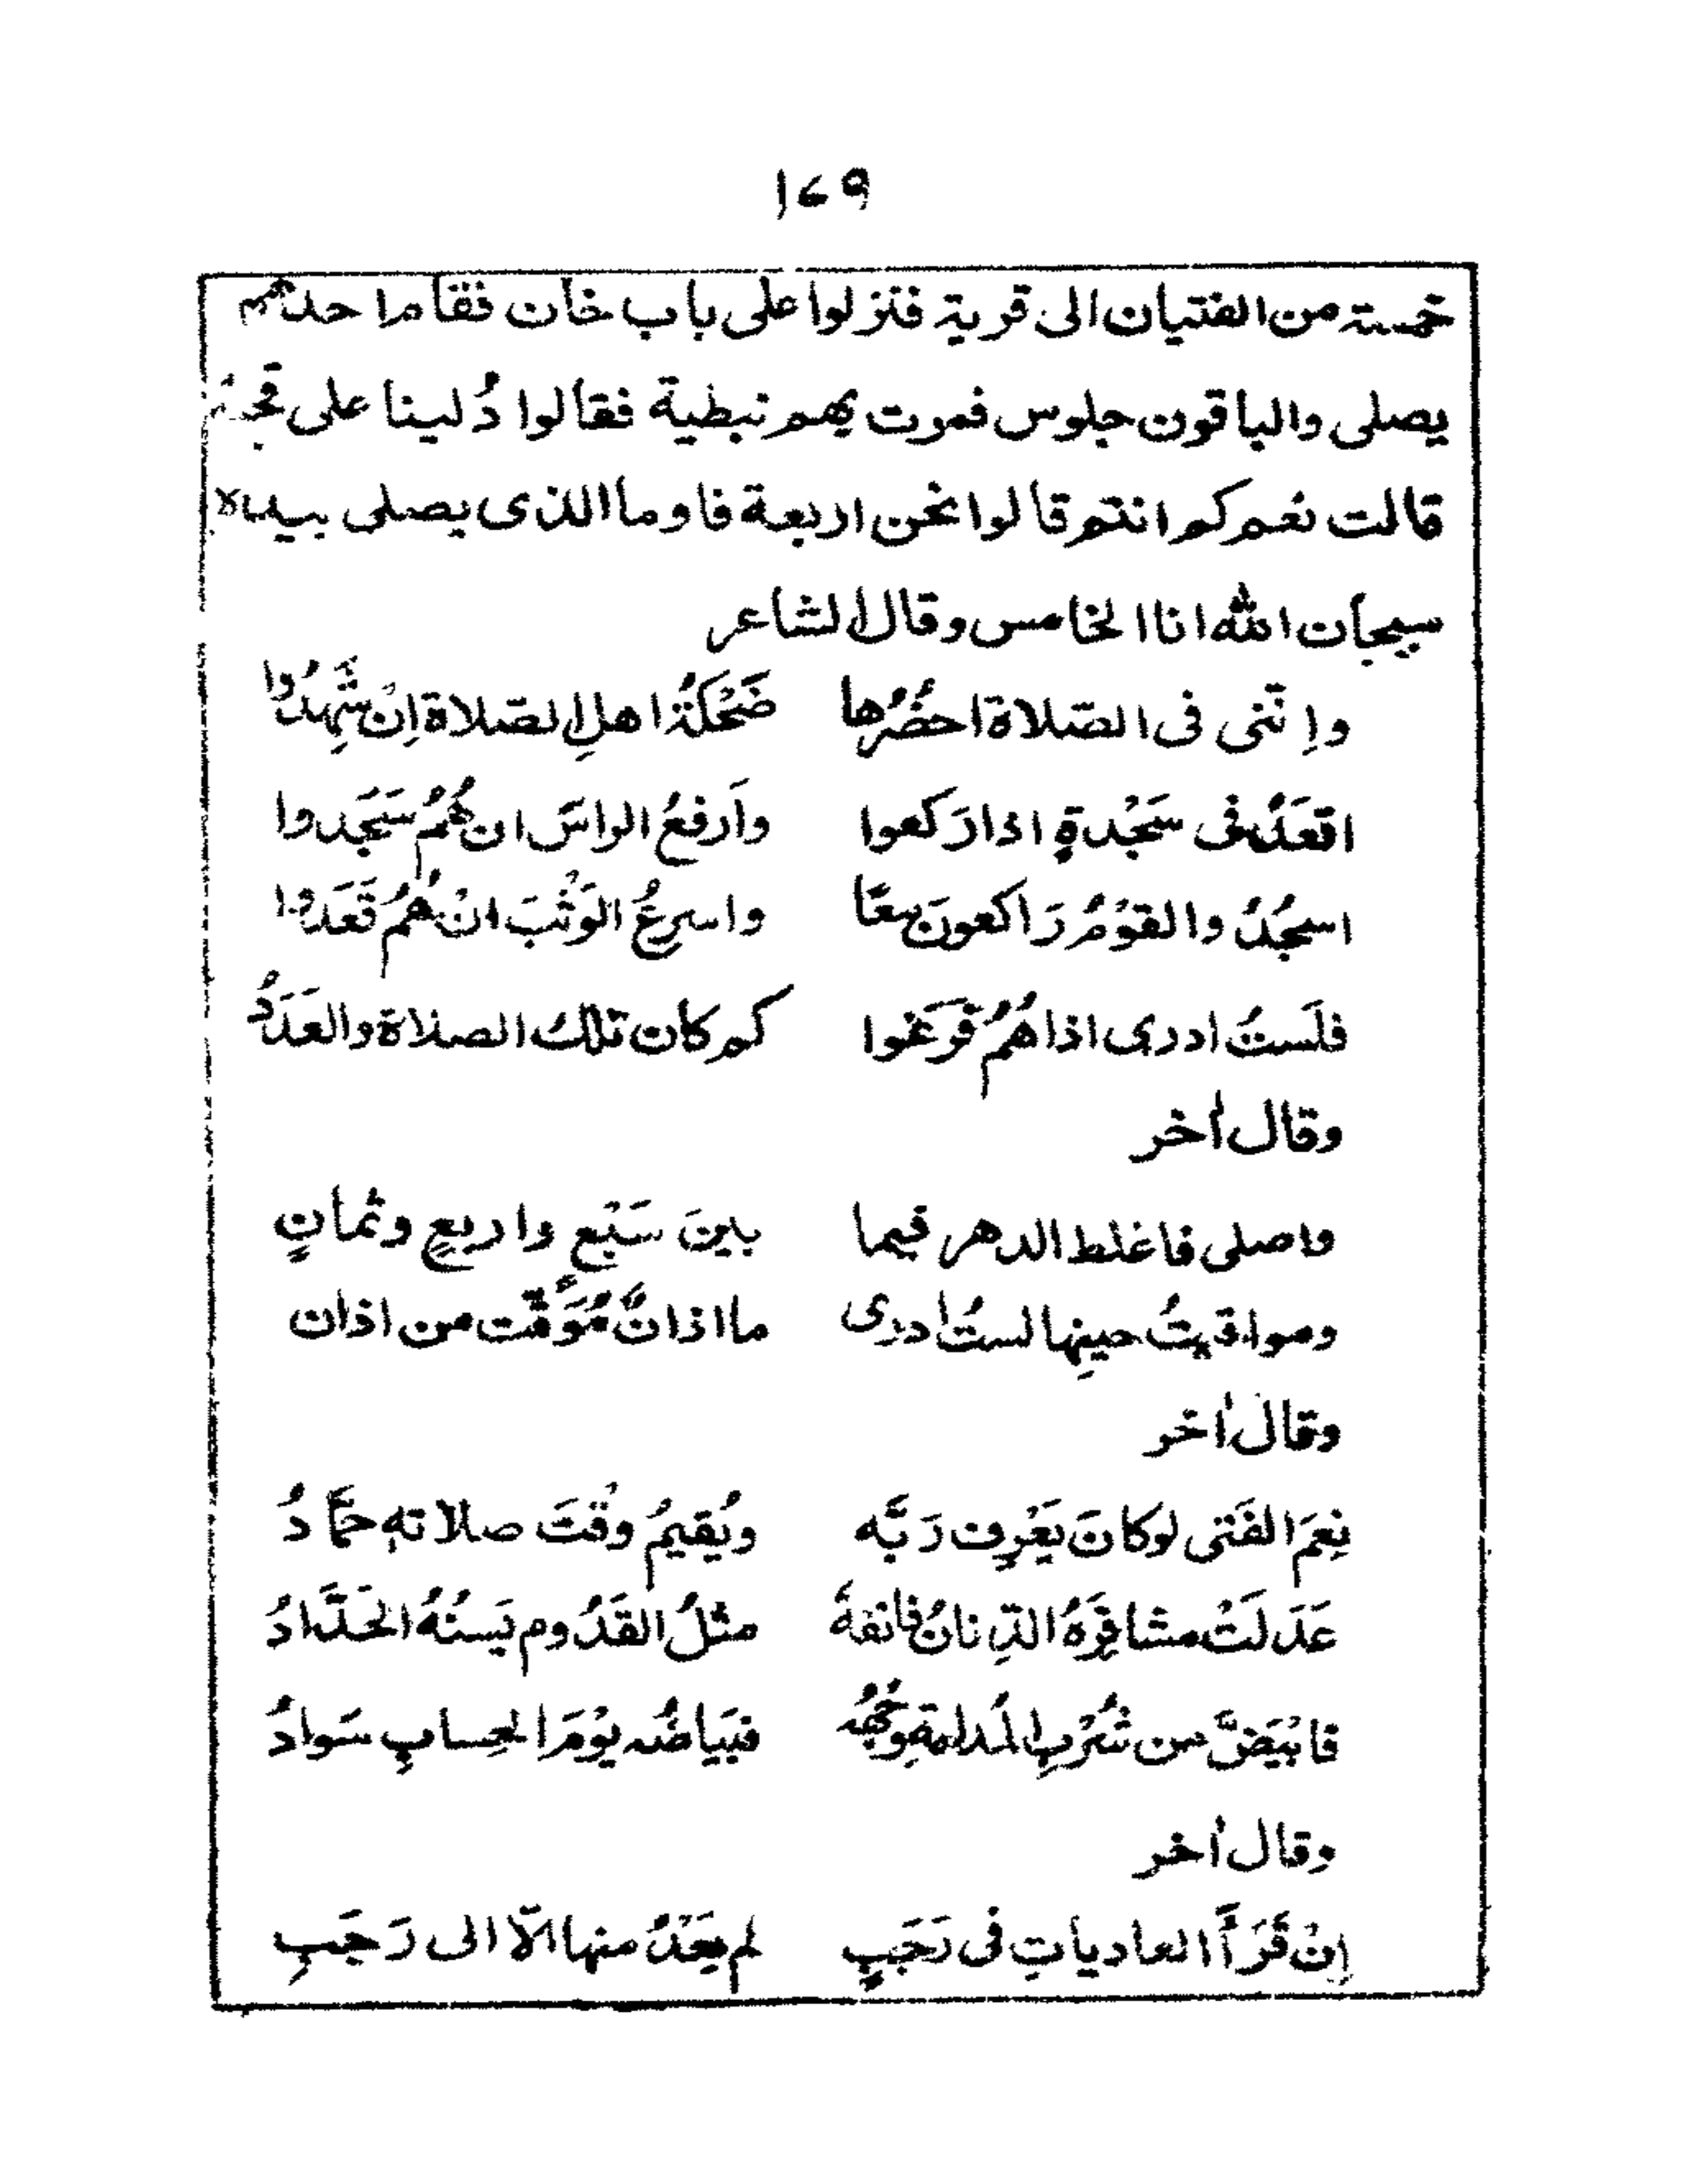 ١٦٩
خمسة من الفتيان الى قرية فنزلوا على باب خان فقام احدهم
يصلى والباقون جلوس فمرت بهم نبطية فقالوا دُلينا على قحبة
قالت نعم كم انتم قالوا نحن اربعة فاوما الذى يصلى بيده الا
سبحان الله انا الخامس وقال الشاعر
وإنّنى فى الصّلاة احضُرُها ضَحْكَةُ اهلِ الصّلاة إنْ شَهِدُوا
اقعَدُ فى سَجْدةٍ اذا رَكَعوا وأرفعُ الراسَ ان هُمُ سَجَدوا
اسجُدُ والقوْمُ رَاكعونَ معًا واسرِعُ الوَثْبَ انْ هُمُ قَعَدُوا
فلَستُ ادرى اذا هُمُ فَرَغوا كم كان تلك الصلاة والعَدَدُ
وقال اٰخر
واصلى فاغلط الدهر فيما بينَ سَبْعٍ واربعٍ وثمانٍ
ومواقيتُ حينِها لستُ ادرى ما اذانٌ مُوَقّت من اذان
وقال اٰخر
نِعمَ الفَتى لو كانَ يَعْرِف رَبَّه ويُقيمُ وقتَ صلاته حَمَّادُ
عَدَلَتْ مشافِرَهُ الدِّنانُ فانفهُ مثلُ القَدُوم يَسنُهُ الحَدَّادُ
فابْيَضَّ من شُرْبِ المُدامةِ وَجْهُه فبَياضُه يوْمَ الحِسابِ سَوادُ
وقال اٰخر
إنْ قَرَأَ العادياتِ فى رَجَبٍ لم يَعُدْ منها الّا الى رَجَبِ